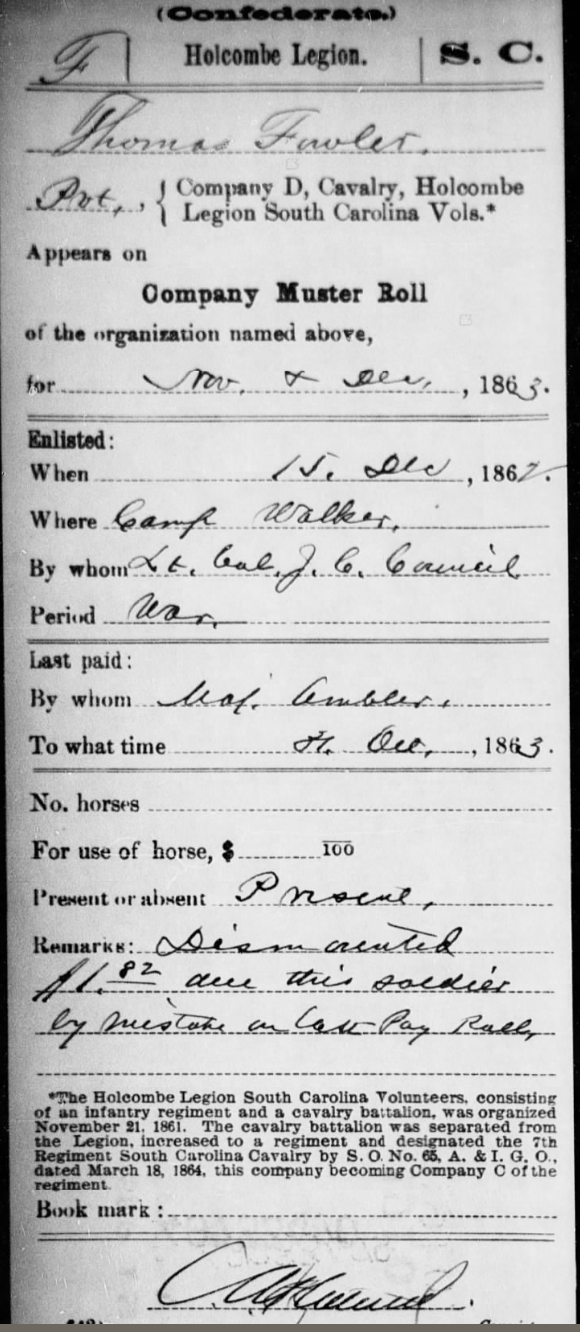 (Confederate.)
F | Holcombe Legion. | S. C.
Thomas Fowler.
Pvt., { Company D, Cavalry, Holcombe
Legion South Carolina Vols.*
Appears on
Company Muster Roll
of the organization named above,
for Nov. & Dec., 1863.
Enlisted:
When 15. Dec, 1862.
Where Camp Walker.
By whom Lt. Col. J. C. Council
Period War.
Last paid:
By whom Maj. Ambler.
To what time 31. Oct., 1863.
No. horses
For use of horse, $ 100
Present or absent Present,
Remarks: Dismounted
$1.82 due this soldier
by mistake on last Pay Roll,
*The Holcombe Legion South Carolina Volunteers, consisting
of an infantry regiment and a cavalry battalion, was organized
November 21, 1861. The cavalry battalion was separated from
the Legion, increased to a regiment and designated the 7th
Regiment South Carolina Cavalry by S. O. No. 65, A. & I. G. O.,
dated March 18, 1864, this company becoming Company C of the
regiment.
Book mark: